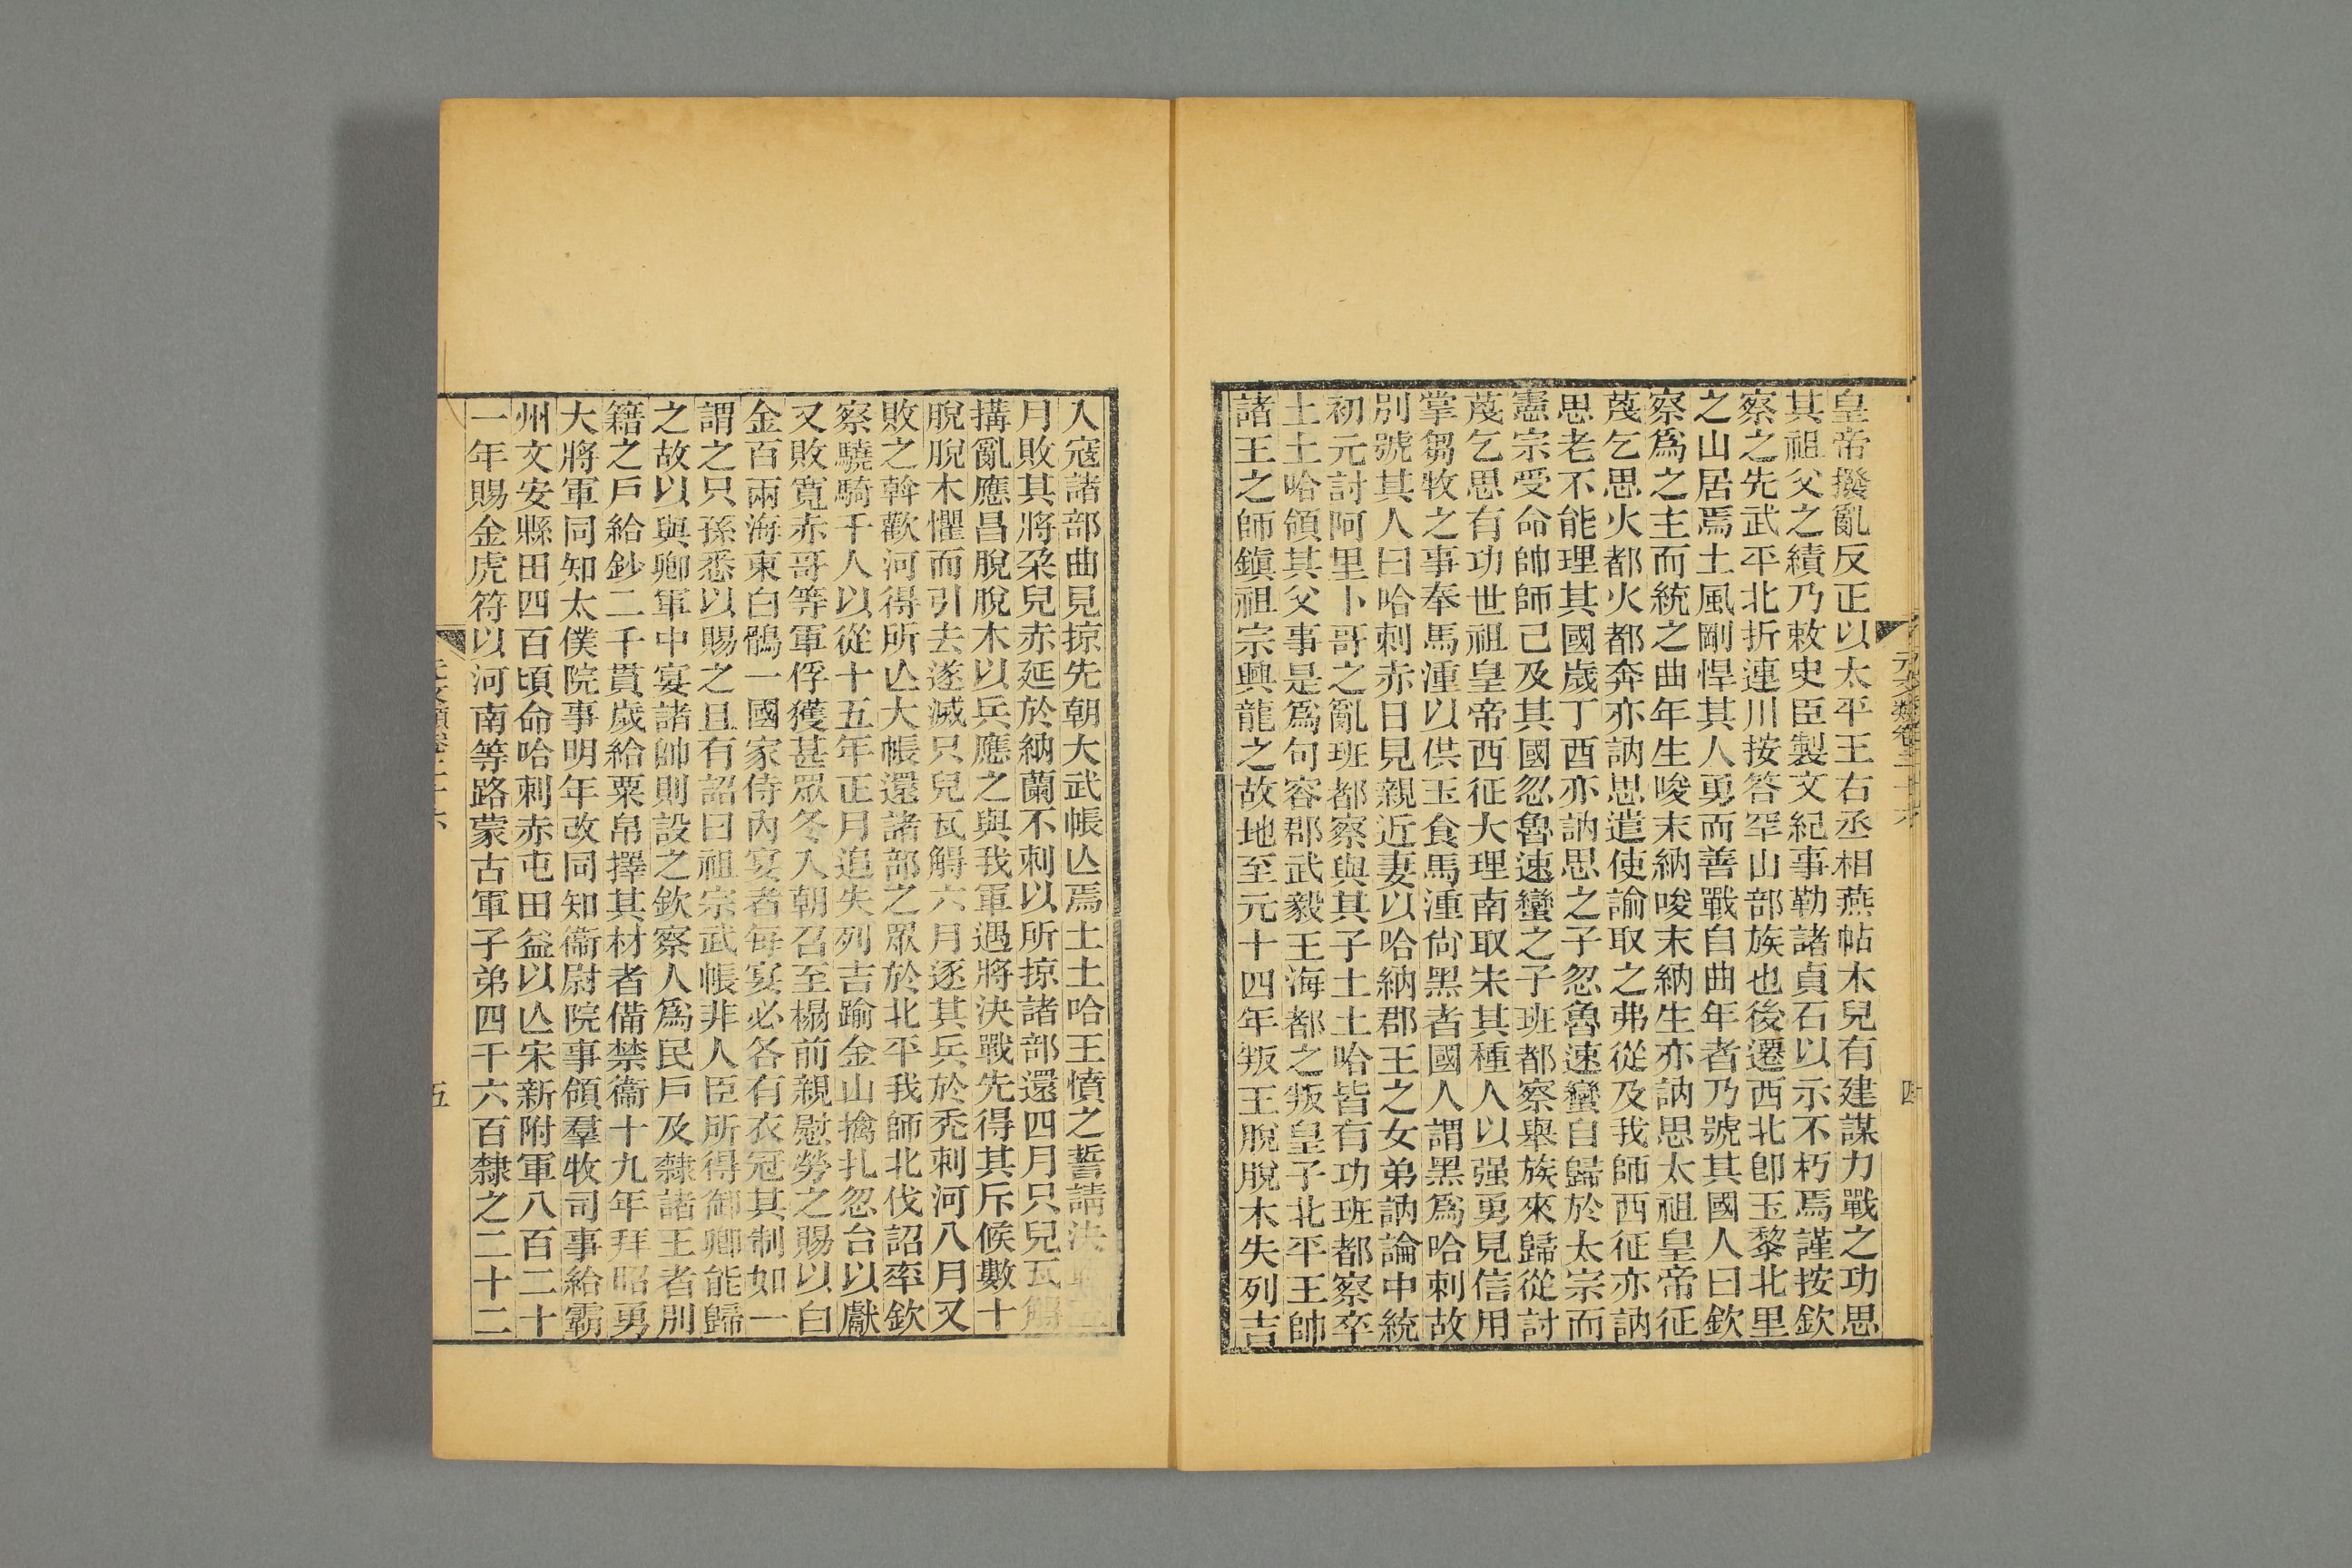 皇帝撥亂反正以太平王右丞相燕帖木兒有建謀力戰之功思
其祖父之績乃敕史臣製文紀事勒諸貞石以示不朽焉謹按欽
察之先武平北折連川按答罕山部族也後遷西北卽玉黎北里
之山居焉土風剛悍其人勇而善戰自曲年者乃號其國人曰欽
察爲之主而統之曲年生唆末納唆末納生亦訥思太祖皇帝征
蔑乞思火都火都奔亦訥思遣使諭取之弗從及我師西征亦訥
思老不能理其國歲丁酉亦訥思之子忽魯速蠻自歸於太宗而
憲宗受命帥師已及其國忽魯速蠻之子班都察舉族來歸從討
蔑乞思有功世祖皇帝西征大理南取宋其種人以强勇見信用
掌芻牧之事奉馬湩以供玉食馬湩尙黑者國人謂黑爲哈剌故
別號其人曰哈剌赤日見親近妻以哈納郡王之女弟訥論中統
初元討阿里卜哥之亂班都察與其子土土哈皆有功班都察卒
土土哈領其父事是爲句容郡武毅王海都之叛皇子北平王帥
諸王之師鎭祖宗興龍之故地至元十四年叛王脫脫木失列吉
元文類卷二十六
四
入寇諸部曲見掠先朝大武帳亾焉土土哈王憤之誓請決
月敗其將朶兒赤延於納蘭不剌以所掠諸部還四月只兒瓦䚟
搆亂應昌脫脫木以兵應之與我軍遇將決戰先得其斥候數十
脫脫木懼而引去遂滅只兒瓦䚟六月逐其兵於禿剌河八月又
敗之斡歡河得所亾大帳還諸部之眾於北平我師北伐詔率欽
察驍騎千人以從十五年正月追失列吉踰金山擒扎忽台以獻
又敗寬赤哥等軍俘獲甚眾冬入朝召至榻前親慰勞之賜以白
金百兩海東白鶻一國家侍內宴者每宴必各有衣冠其制如一
謂之只孫悉以賜之且有詔曰祖宗武帳非人臣所得御卿能歸
之故以與卿軍中宴諸帥則設之欽察人爲民戶及隸諸王者別
籍之戶給鈔二千貫歲給粟帛擇其材者備禁衞十九年拜昭勇
大將軍同知太僕院事明年改同知衞尉院事領羣牧司事給霸
州文安縣田四百頃命哈剌赤屯田益以亾宋新附軍八百二十
一年賜金虎符以河南等路蒙古軍子弟四千六百隸之二十二
元文類卷二十六
五